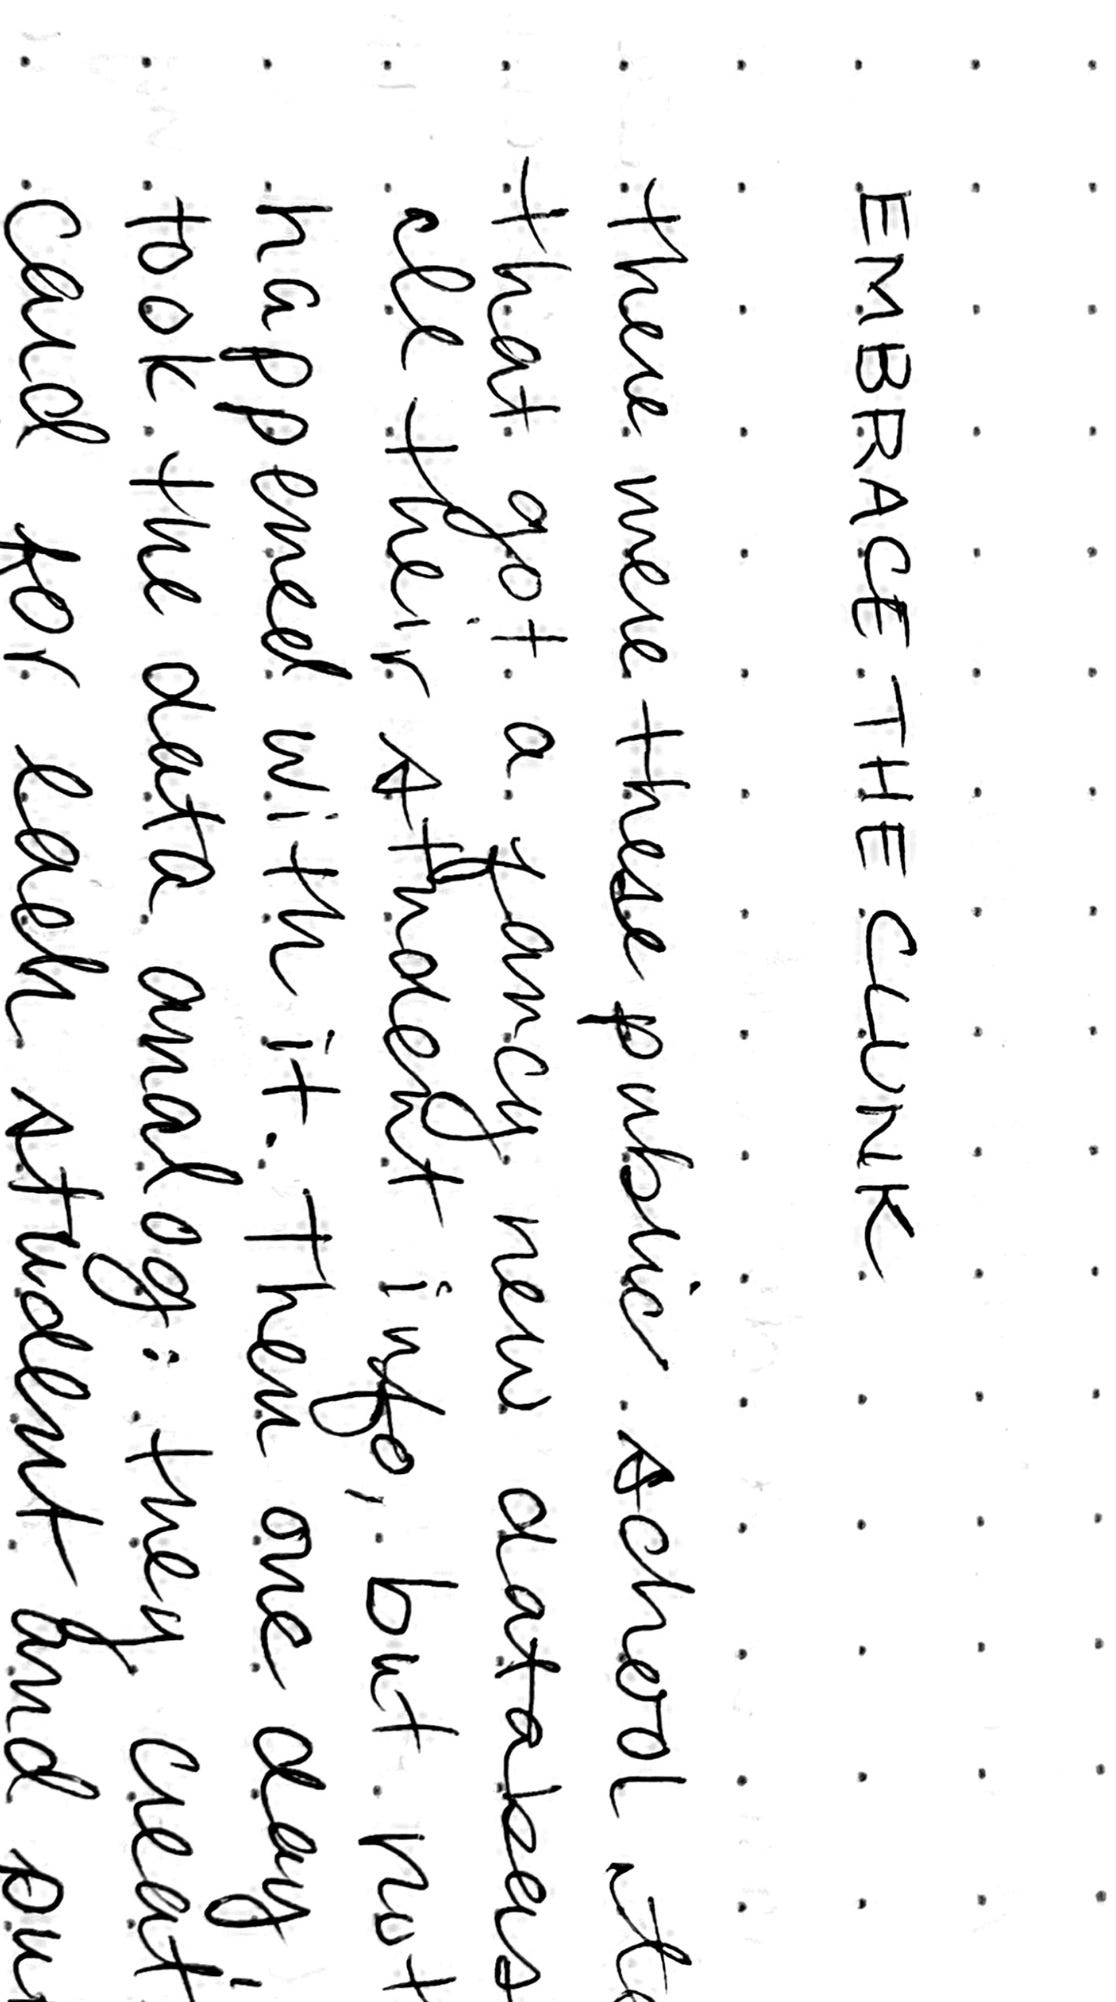 EMBRACE THE CLUNK
there were these public school
that got a fancy new databas
all their student info, but not
happened with it. Then one day
took the data analog: they creat
card for each student and